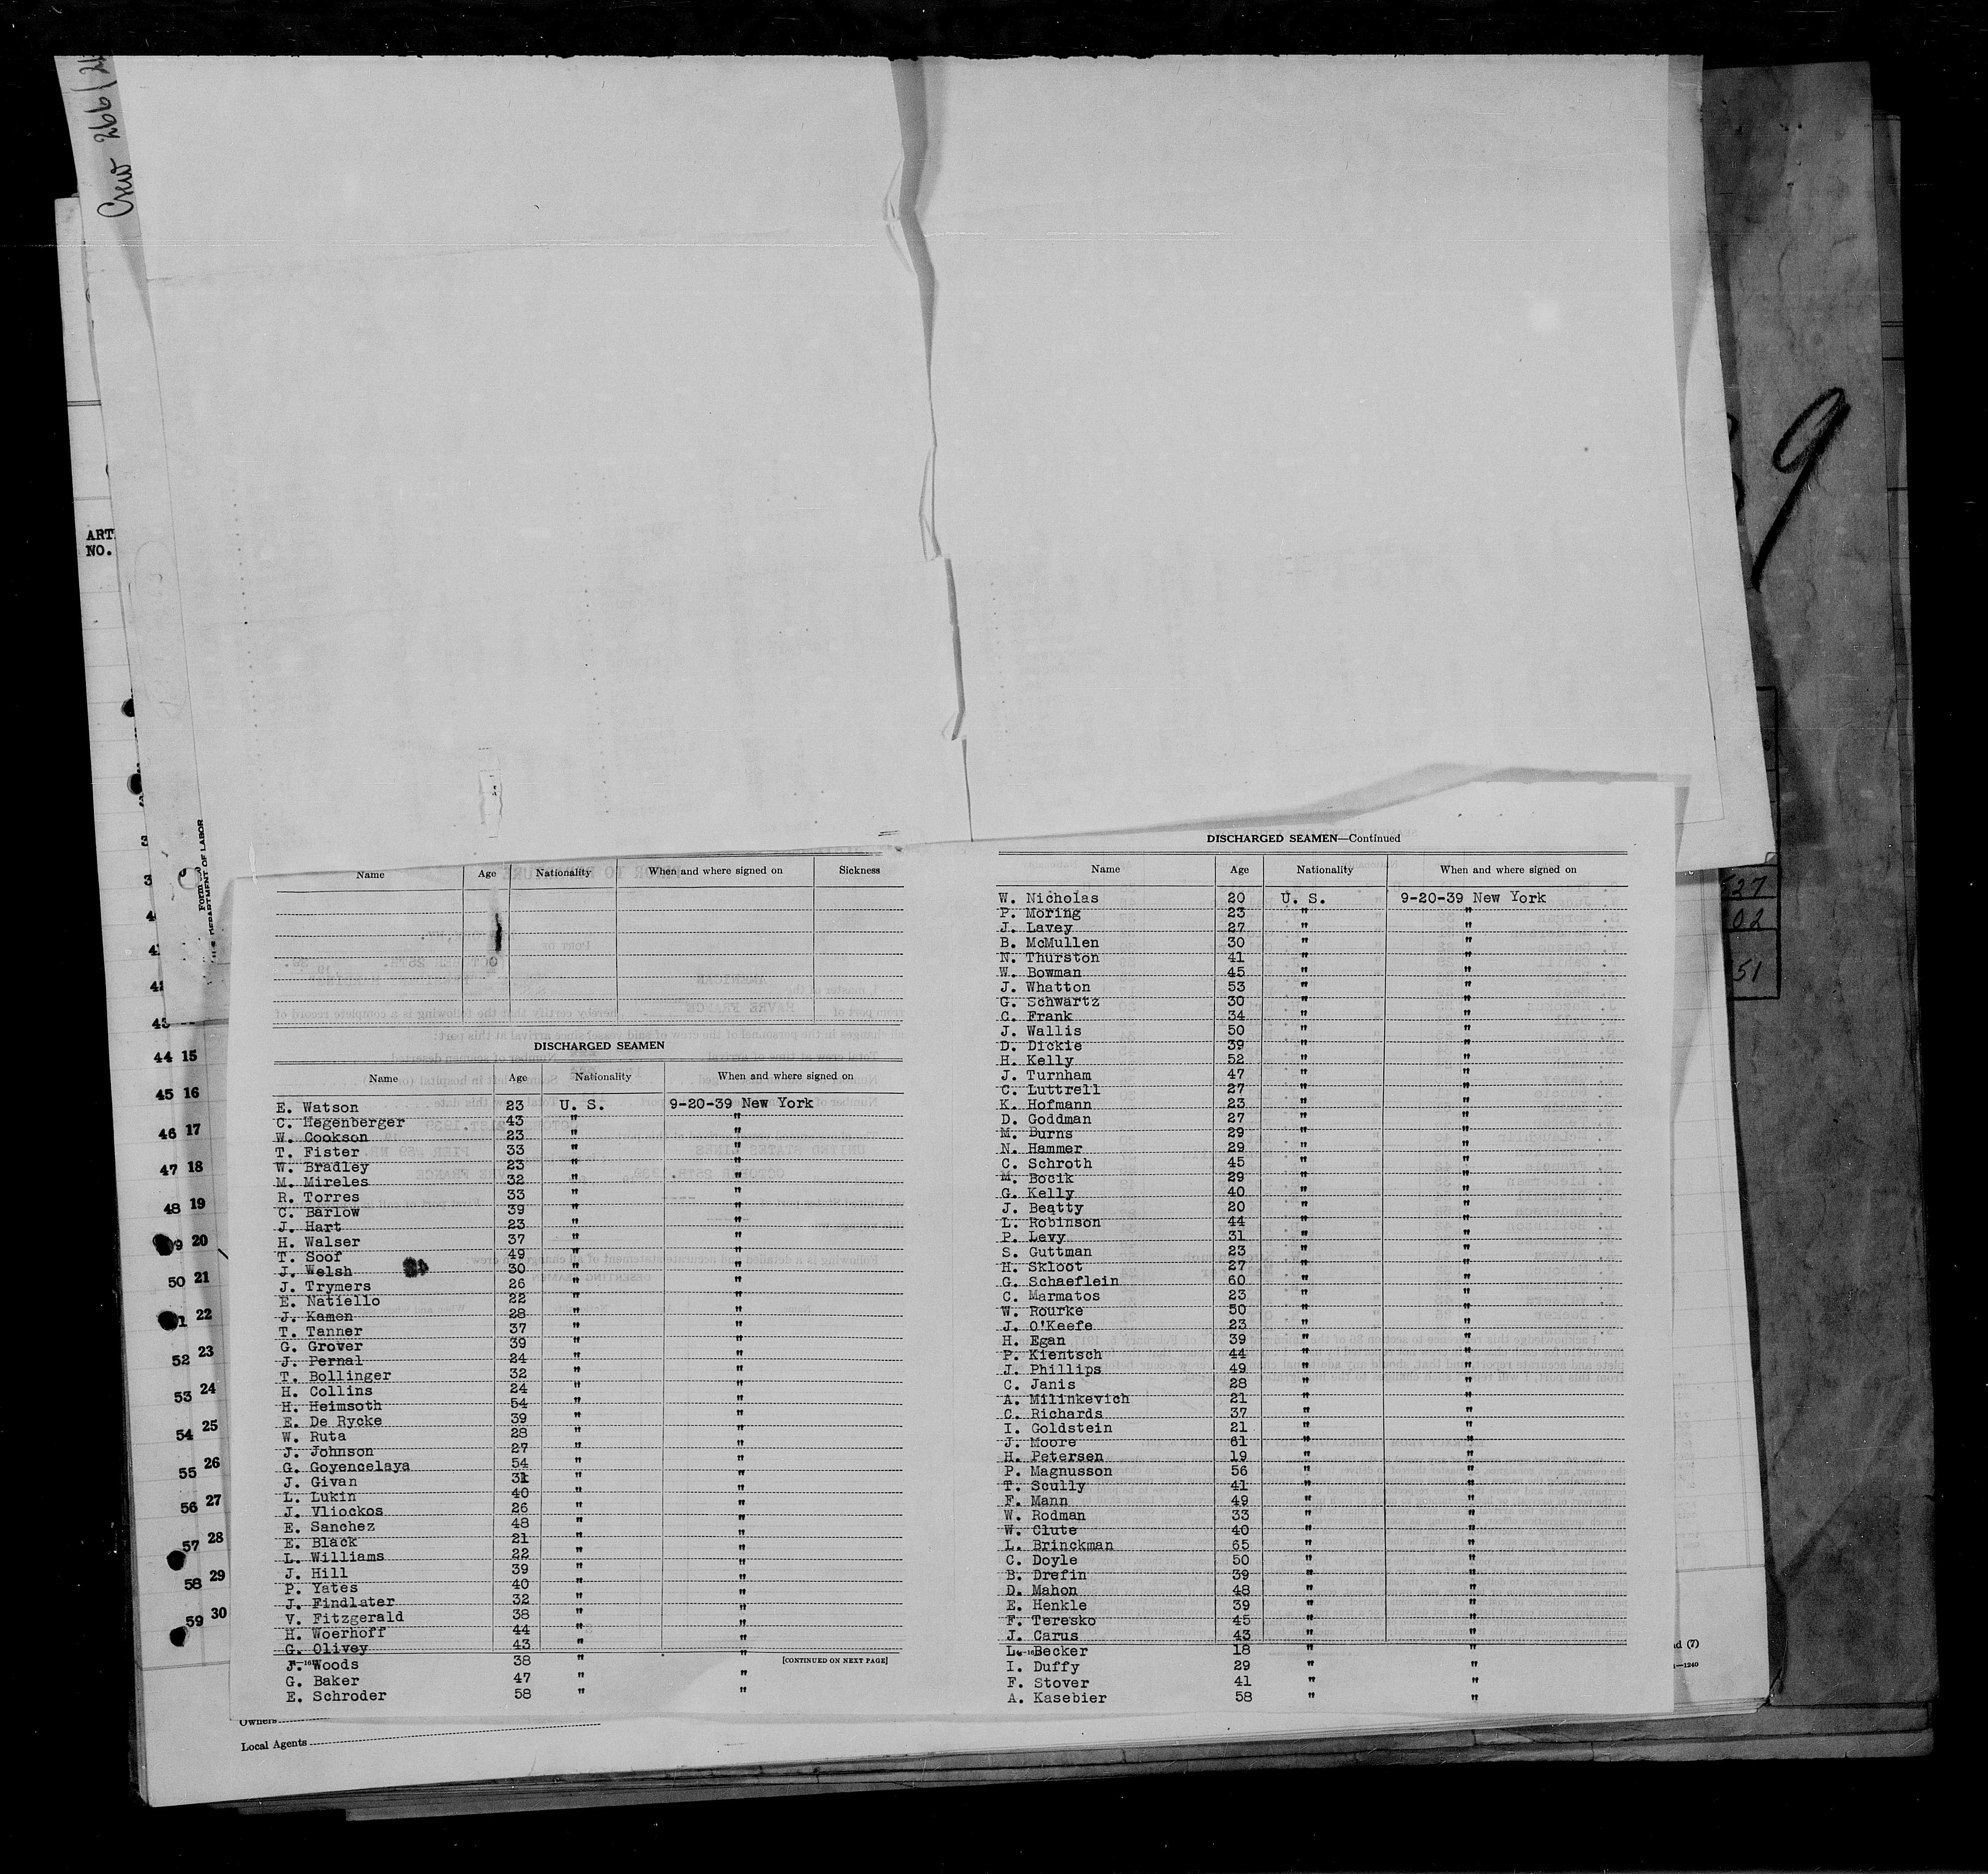 Crew 266/24
9
ART.
NO.
DEPARTMENT OF LABOR
527
02
51
Name Age Nationality When and where signed on Sickness
DISCHARGED SEAMEN
Name Age Nationality When and where signed on
E. Watson 23 U. S. 9-20-39 New York
C. Hegenberger 43 " "
W. Cookson 23 " "
T. Fister 33 " "
W. Bradley 23 " "
M. Mireles 32 " "
R. Torres 33 " "
C. Barlow 39 " "
J. Hart 23 " "
H. Walser 37 " "
T. Soof 49 " "
J. Welsh 30 " "
J. Trymers 26 " "
E. Natiello 22 " "
J. Kamen 28 " "
T. Tanner 37 " "
G. Grover 39 " "
J. Pernal 24 " "
T. Bollinger 32 " "
H. Collins 24 " "
H. Heimsoth 54 " "
E. De Rycke 39 " "
W. Ruta 28 " "
J. Johnson 27 " "
G. Goyencelaya 54 " "
J. Givan 31 " "
L. Lukin 40 " "
J. Vliockos 26 " "
E. Sanchez 48 " "
E. Black 21 " "
L. Williams 22 " "
J. Hill 39 " "
P. Yates 40 " "
J. Findlater 32 " "
V. Fitzgerald 38 " "
H. Woerhoff 44 " "
G. Olivey 43 " "
J. Woods 38 " "
[CONTINUED ON NEXT PAGE]
G. Baker 47 " "
E. Schroder 58 " "
DISCHARGED SEAMEN—Continued
Name Age Nationality When and where signed on
W. Nicholas 20 U. S. 9-20-39 New York
P. Moring 23 " "
J. Lavey 27 " "
B. McMullen 30 " "
N. Thurston 41 " "
W. Bowman 45 " "
J. Whatton 53 " "
G. Schwartz 30 " "
C. Frank 34 " "
J. Wallis 50 " "
D. Dickie 39 " "
H. Kelly 52 " "
J. Turnham 47 " "
C. Luttrell 27 " "
K. Hofmann 23 " "
D. Goddman 27 " "
M. Burns 29 " "
N. Hammer 29 " "
C. Schroth 45 " "
M. Bocik 29 " "
G. Kelly 40 " "
J. Beatty 20 " "
L. Robinson 44 " "
P. Levy 31 " "
S. Guttman 23 " "
H. Skloot 27 " "
G. Schaeflein 60 " "
C. Marmatos 23 " "
W. Rourke 50 " "
J. O'Keefe 23 " "
H. Egan 39 " "
P. Kientsch 44 " "
J. Phillips 49 " "
C. Janis 28 " "
A. Milinkevich 21 " "
C. Richards 37 " "
I. Goldstein 21 " "
J. Moore 61 " "
H. Petersen 19 " "
P. Magnusson 56 " "
T. Scully 41 " "
F. Mann 49 " "
W. Rodman 33 " "
W. Clute 40 " "
L. Brinckman 65 " "
C. Doyle 50 " "
B. Drefin 39 " "
D. Mahon 48 " "
E. Henkle 39 " "
F. Teresko 45 " "
J. Carus 43 " "
L. Becker 18 " "
I. Duffy 29 " "
F. Stover 41 " "
A. Kasebier 58 " "
44 15
45 16
46 17
47 18
48 19
20
50 21
22
52 23
53 24
54 25
55 26
56 27
57 28
58 29
59 30
(7)
—1240
Owners
Local Agents